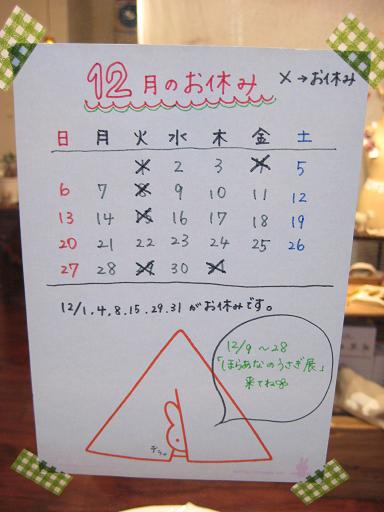 12月のお休み
×→お休み
日 月 火 水 木 金 土
1 2 3 4 5
6 7 8 9 10 11 12
13 14 15 16 17 18 19
20 21 22 23 24 25 26
27 28 29 30 31
12/1.4.8.15.29.31がお休みです。
12/9～28
「ほらあなのうさぎ展」
来てね